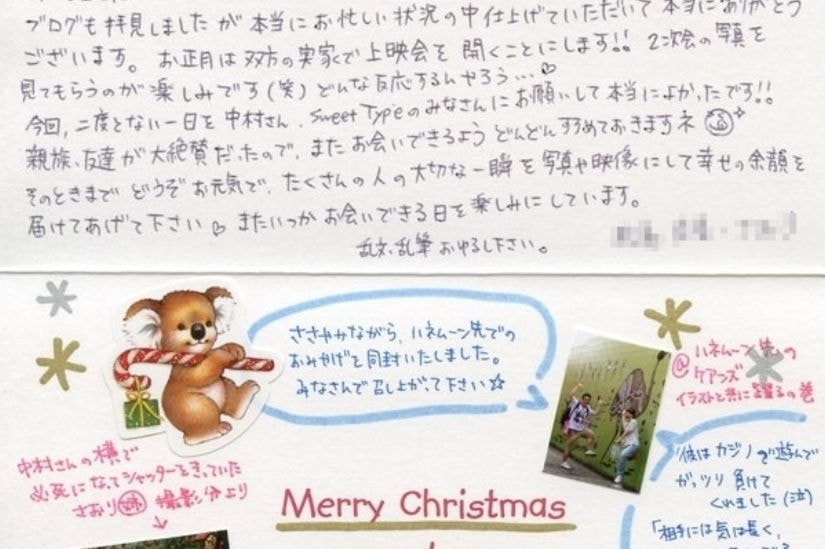 ブログも拝見しましたが本当にお忙しい状況の中仕上げていただいて本当にありがとう
ございます。お正月は双方の実家で上映会を開くことにします!! 2次会の写真を
見てもらうのが楽しみです(笑)どんな反応するんやろう…♡
今回、二度とない一日を中村さん、Sweet Typeのみなさんにお願いして本当によかったです!!
親族、友達が大絶賛だったので、またお会いできるようどんどんすすめておきますネ
そのときまでどうぞお元気で、たくさんの人の大切な一瞬を写真や映像にして幸せの余韻を
届けてあげて下さい♡ またいつかお会いできる日を楽しみにしています。
乱文、乱筆お許し下さい。
ささやかながら、ハネムーン先での
おみやげを同封いたしました。
みなさんで召し上がって下さい☆
@ハネムーン先の
ケアンズ
イラストと共に踊るの巻
中村さんの横で
必死になってシャッターをきっていた
さおり(姉) 撮影分より
彼はカジノで遊んで
ガッツリ負けて
くれました(泣)
「相手には気は長く、
Merry Christmas